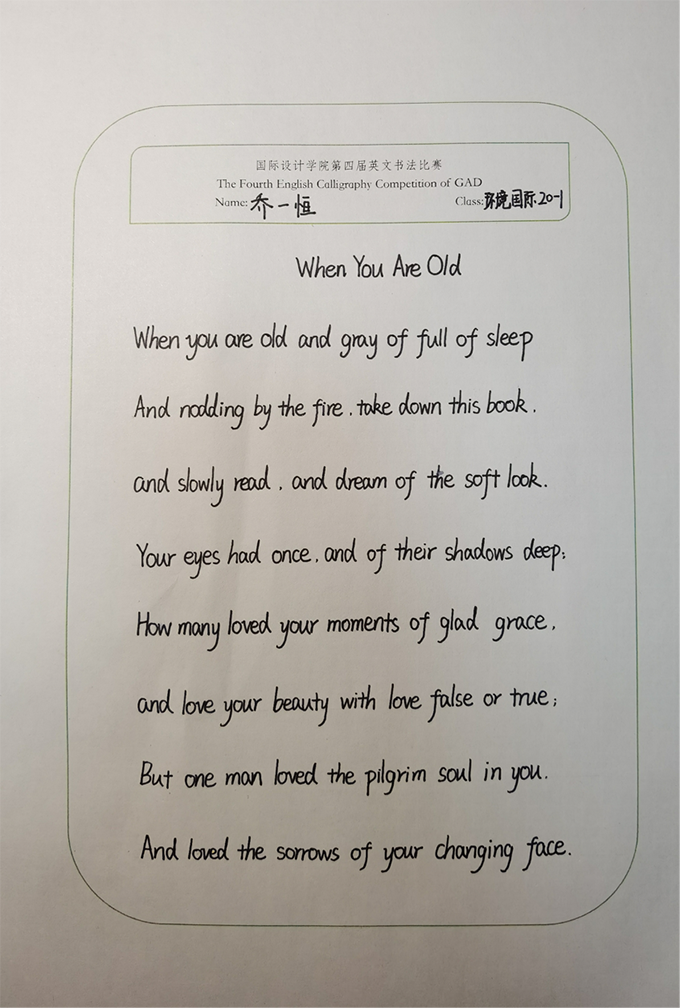 国际设计学院第四届英文书法比赛
The Fourth English Calligraphy Competition of GAD
Name: 乔一恒 Class: 环境国际20-1
When You Are Old
When you are old and gray of full of sleep
And nodding by the fire, take down this book.
and slowly read, and dream of the soft look.
Your eyes had once, and of their shadows deep;
How many loved your moments of glad grace,
and love your beauty with love false or true;
But one man loved the pilgrim soul in you.
And loved the sorrows of your changing face.